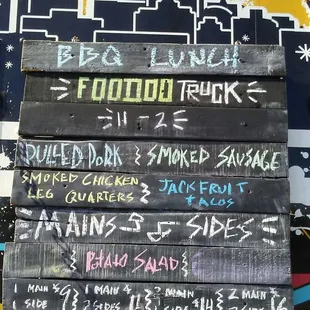 BBQ LUNCH
FOODOO TRUCK
11-2
PULLED PORK
SMOKED SAUSAGE
SMOKED CHICKEN
LEG QUARTERS
JACKFRUIT
TACOS
MAINS SIDES
POTATO SALAD
1 MAIN
1 SIDE
9
1 MAIN
2 SIDES
11
2 MAIN
$14
2 MAIN
SIDES
16